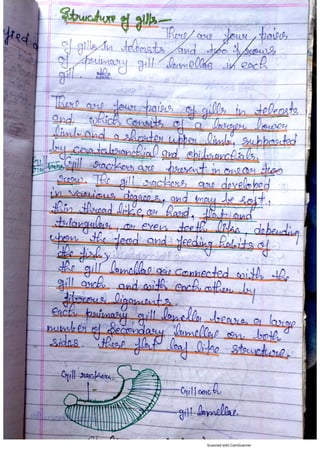 Structure of gills –
There are four pairs
of gills in teleosts and two rows
of primary gill lamellae in each
gill. the
There are four pairs of gills in teleosts
and which consists of a larger lower
limb and a shorter upper limb, supported
by ceratobranchial and epibranchials.
Gill rackers are present in one or two
row. The gill rackers are developed
in various degrees, and may be soft,
thin thread like or hard, flat and
triangular, or even teeth like depending
upon the food and feeding habits of
the fish,
the gill lamellae are connected with the
gill arch and with each other by
fibrous ligaments.
each primary gill lamellae bears a large
number of secondary lamellae on both
sides. these flat leaf like structure.
Gill rackers
Gill arch
gill lamellae.
Scanned with CamScanner